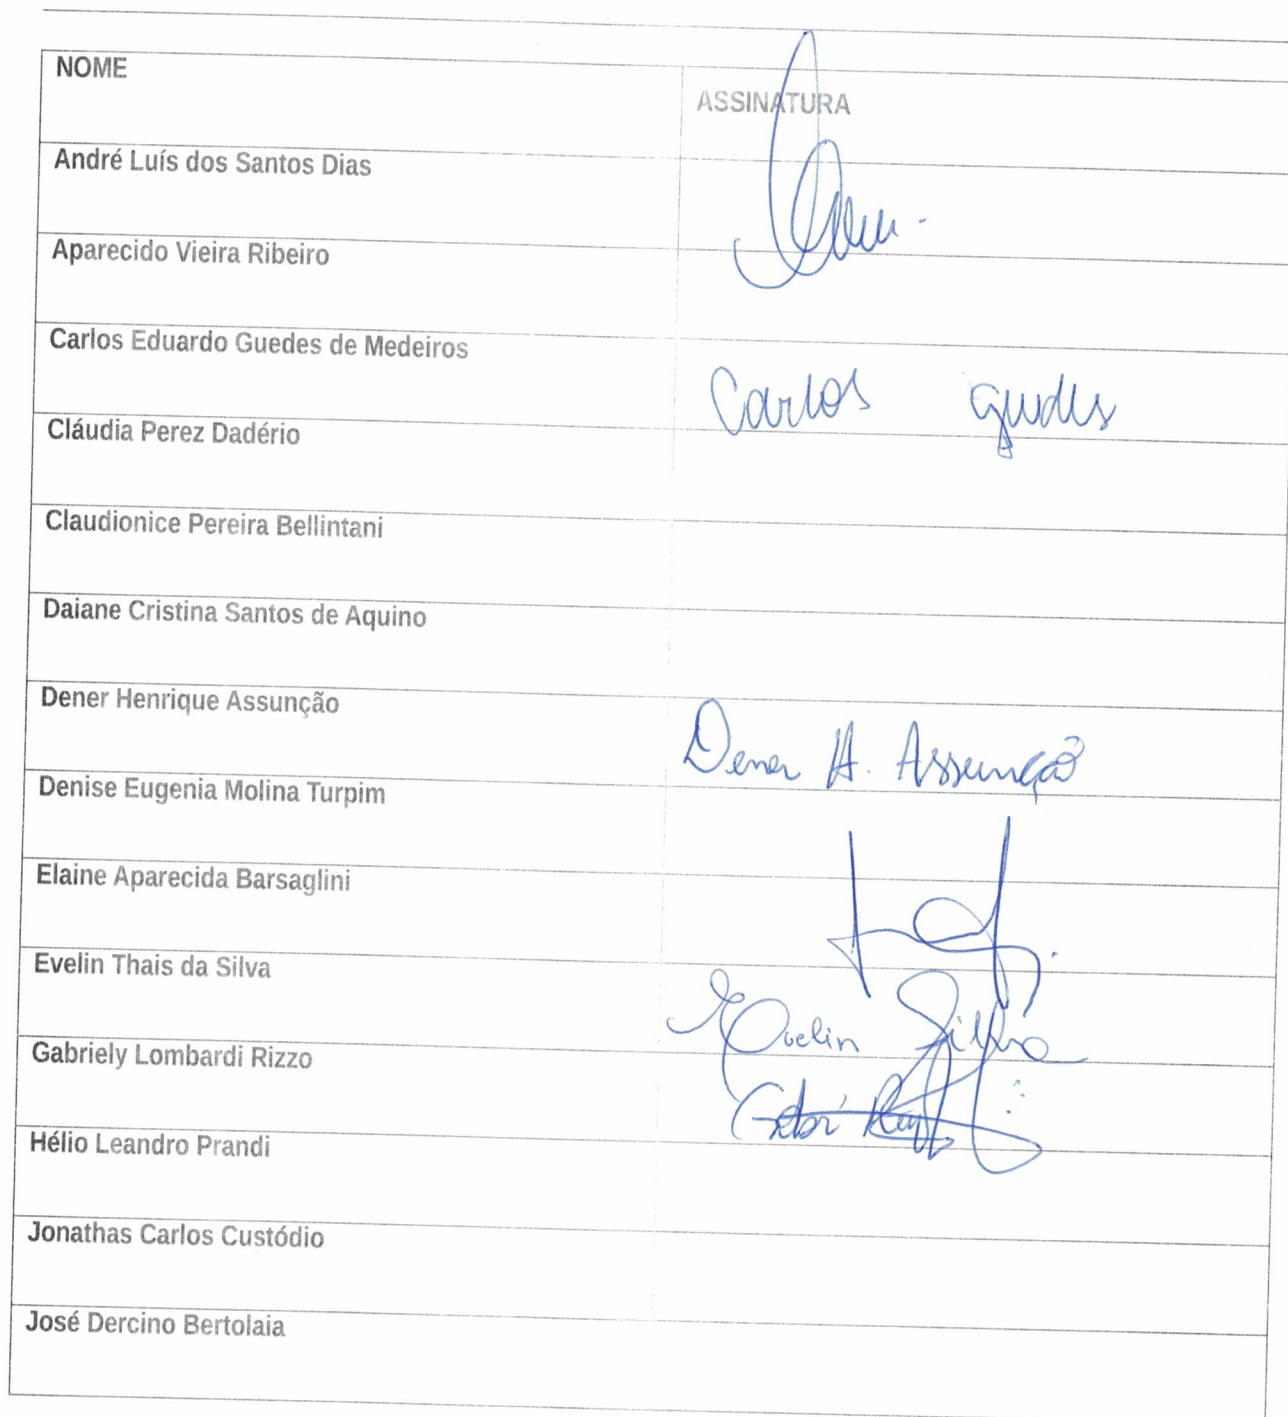 NOME
ASSINATURA
André Luís dos Santos Dias
Aparecido Vieira Ribeiro
Carlos Eduardo Guedes de Medeiros
Carlos Guedes
Cláudia Perez Dadério
Claudionice Pereira Bellintani
Daiane Cristina Santos de Aquino
Dener Henrique Assunção
Dener H. Assunção
Denise Eugenia Molina Turpim
Elaine Aparecida Barsaglini
Evelin Thais da Silva
Evelin Silva
Gabriely Lombardi Rizzo
Hélio Leandro Prandi
Jonathas Carlos Custódio
José Dercino Bertolaia